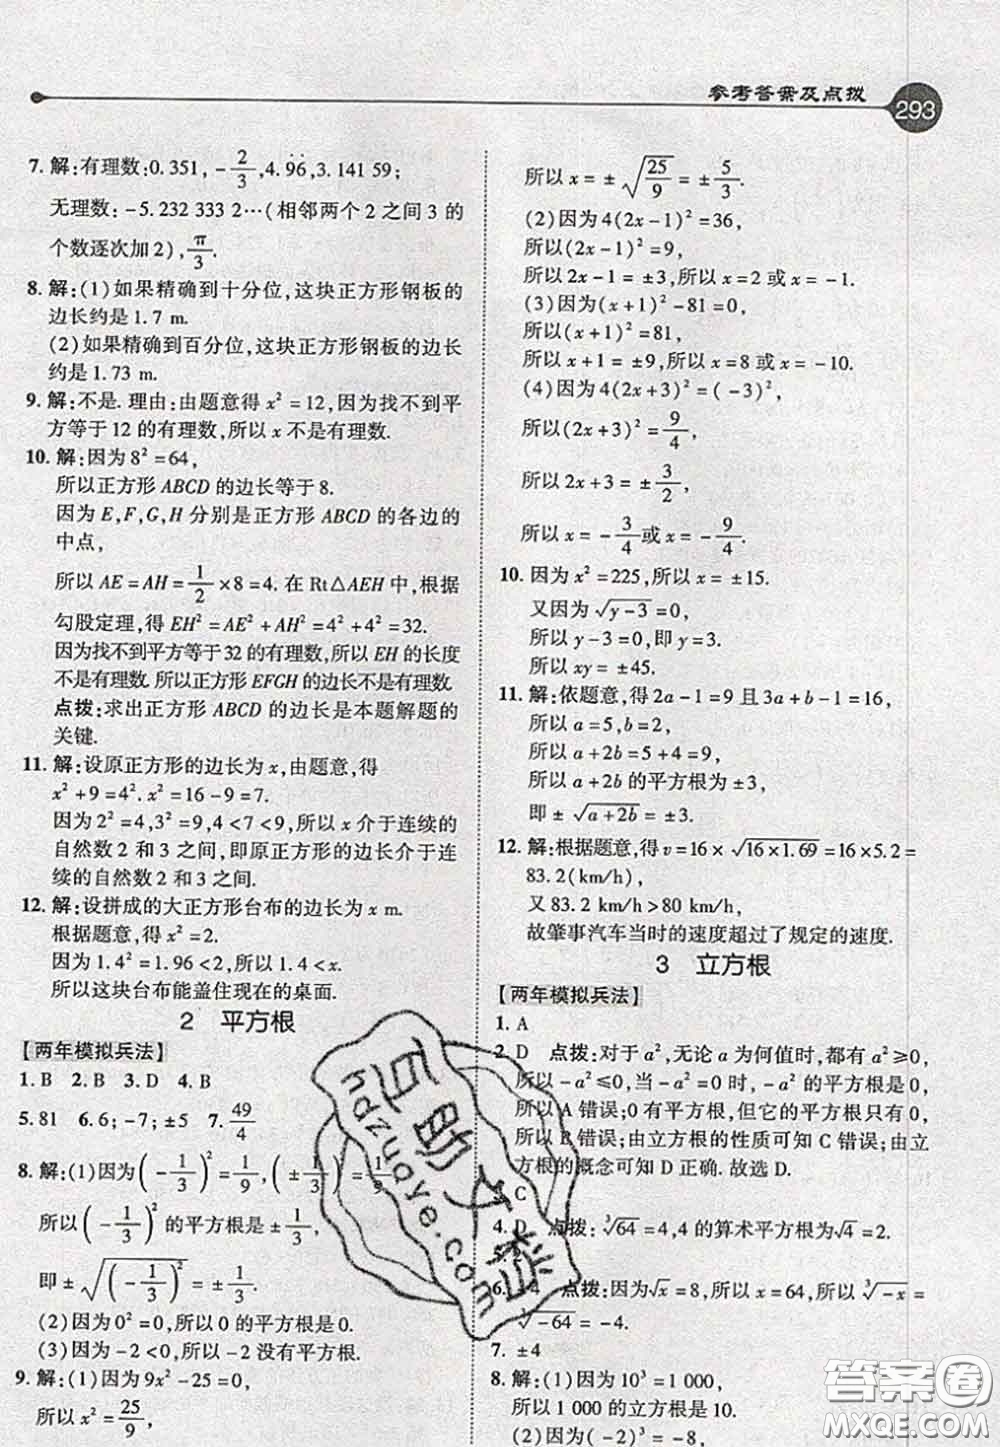 参考答案及点拨 293
7. 解:有理数:0.351, -2/3, 4.9̇6̇, 3.141 59;
无理数: -5.232 333 2…(相邻两个 2 之间 3 的
个数逐次加 2), π/3.
8. 解:(1)如果精确到十分位,这块正方形钢板的
边长约是 1.7 m.
(2)如果精确到百分位,这块正方形钢板的边长
约是 1.73 m.
9. 解:不是. 理由:由题意得 x² = 12,因为找不到平
方等于 12 的有理数,所以 x 不是有理数.
10. 解:因为 8² = 64,
所以正方形 ABCD 的边长等于 8.
因为 E,F,G,H 分别是正方形 ABCD 的各边的
中点,
所以 AE = AH = 1/2 × 8 = 4. 在 Rt△AEH 中,根据
勾股定理,得 EH² = AE² + AH² = 4² + 4² = 32.
因为找不到平方等于 32 的有理数,所以 EH 的长度
不是有理数. 所以正方形 EFGH 的边长不是有理数.
点拨:求出正方形 ABCD 的边长是本题解题的
关键.
11. 解:设原正方形的边长为 x,由题意,得
x² + 9 = 4². x² = 16 - 9 = 7.
因为 2² = 4,3² = 9,4 < 7 < 9,所以 x 介于连续的
自然数 2 和 3 之间,即原正方形的边长介于连
续的自然数 2 和 3 之间.
12. 解:设拼成的大正方形台布的边长为 x m.
根据题意,得 x² = 2.
因为 1.4² = 1.96 < 2,所以 1.4 < x.
所以这块台布能盖住现在的桌面.
2 平方根
【两年模拟兵法】
1. B 2. B 3. D 4. B
5. 81 6. 6; -7; ±5 7. 49/4
8. 解:(1)因为(-1/3)² = 1/9, (±1/3)² = 1/9,
所以(-1/3)² 的平方根是 ±1/3,
即 ±√((-1/3)²) = ±1/3.
(2)因为 0² = 0,所以 0 的平方根是 0.
(3)因为 -2 < 0,所以 -2 没有平方根.
9. 解:(1)因为 9x² - 25 = 0,
所以 x² = 25/9,
所以 x = ±√(25/9) = ±5/3.
(2)因为 4(2x-1)² = 36,
所以(2x-1)² = 9,
所以 2x - 1 = ±3,所以 x = 2 或 x = -1.
(3)因为(x+1)² - 81 = 0,
所以(x+1)² = 81,
所以 x + 1 = ±9,所以 x = 8 或 x = -10.
(4)因为 4(2x+3)² = (-3)²,
所以(2x+3)² = 9/4,
所以 2x + 3 = ±3/2,
所以 x = -3/4 或 x = -9/4.
10. 因为 x² = 225,所以 x = ±15.
又因为 √(y-3) = 0,
所以 y - 3 = 0,即 y = 3.
所以 xy = ±45.
11. 解:依题意,得 2a - 1 = 9 且 3a + b - 1 = 16,
所以 a = 5,b = 2,
所以 a + 2b = 5 + 4 = 9,
所以 a + 2b 的平方根为 ±3,
即 ±√(a+2b) = ±3.
12. 解:根据题意,得 v = 16 × √(16×1.69) = 16 × 5.2 =
83.2(km/h)
又 83.2 km/h > 80 km/h,
故肇事汽车当时的速度超过了规定的速度.
3 立方根
【两年模拟兵法】
1. A
2. D 点拨:对于 a²,无论 a 为何值时,都有 a² ≥ 0,
所以 -a² ≤ 0,当 a = 0 时, -a² = 0 有平方根,
所以 A 错误;0 有平方根,但它的平方根只有 0,
所以 B 错误;由立方根的性质可知 C 错误;由立
方根的概念可知 D 正确. 故选 D.
3. C
4. D 点拨:∛64 = 4,4 的算术平方根为√4 = 2.
5. 2
6. -4 点拨:因为√x = 8,所以 x = 64,所以 ∛(-x) =
∛(-64) = -4.
7. ±4
8. 解:(1)因为 10³ = 1 000,
所以 1 000 的立方根是 10.
(2)因为(-2)³ = -8,
百助文辫
hdzuoye.com
答案圈
MXQE.COM